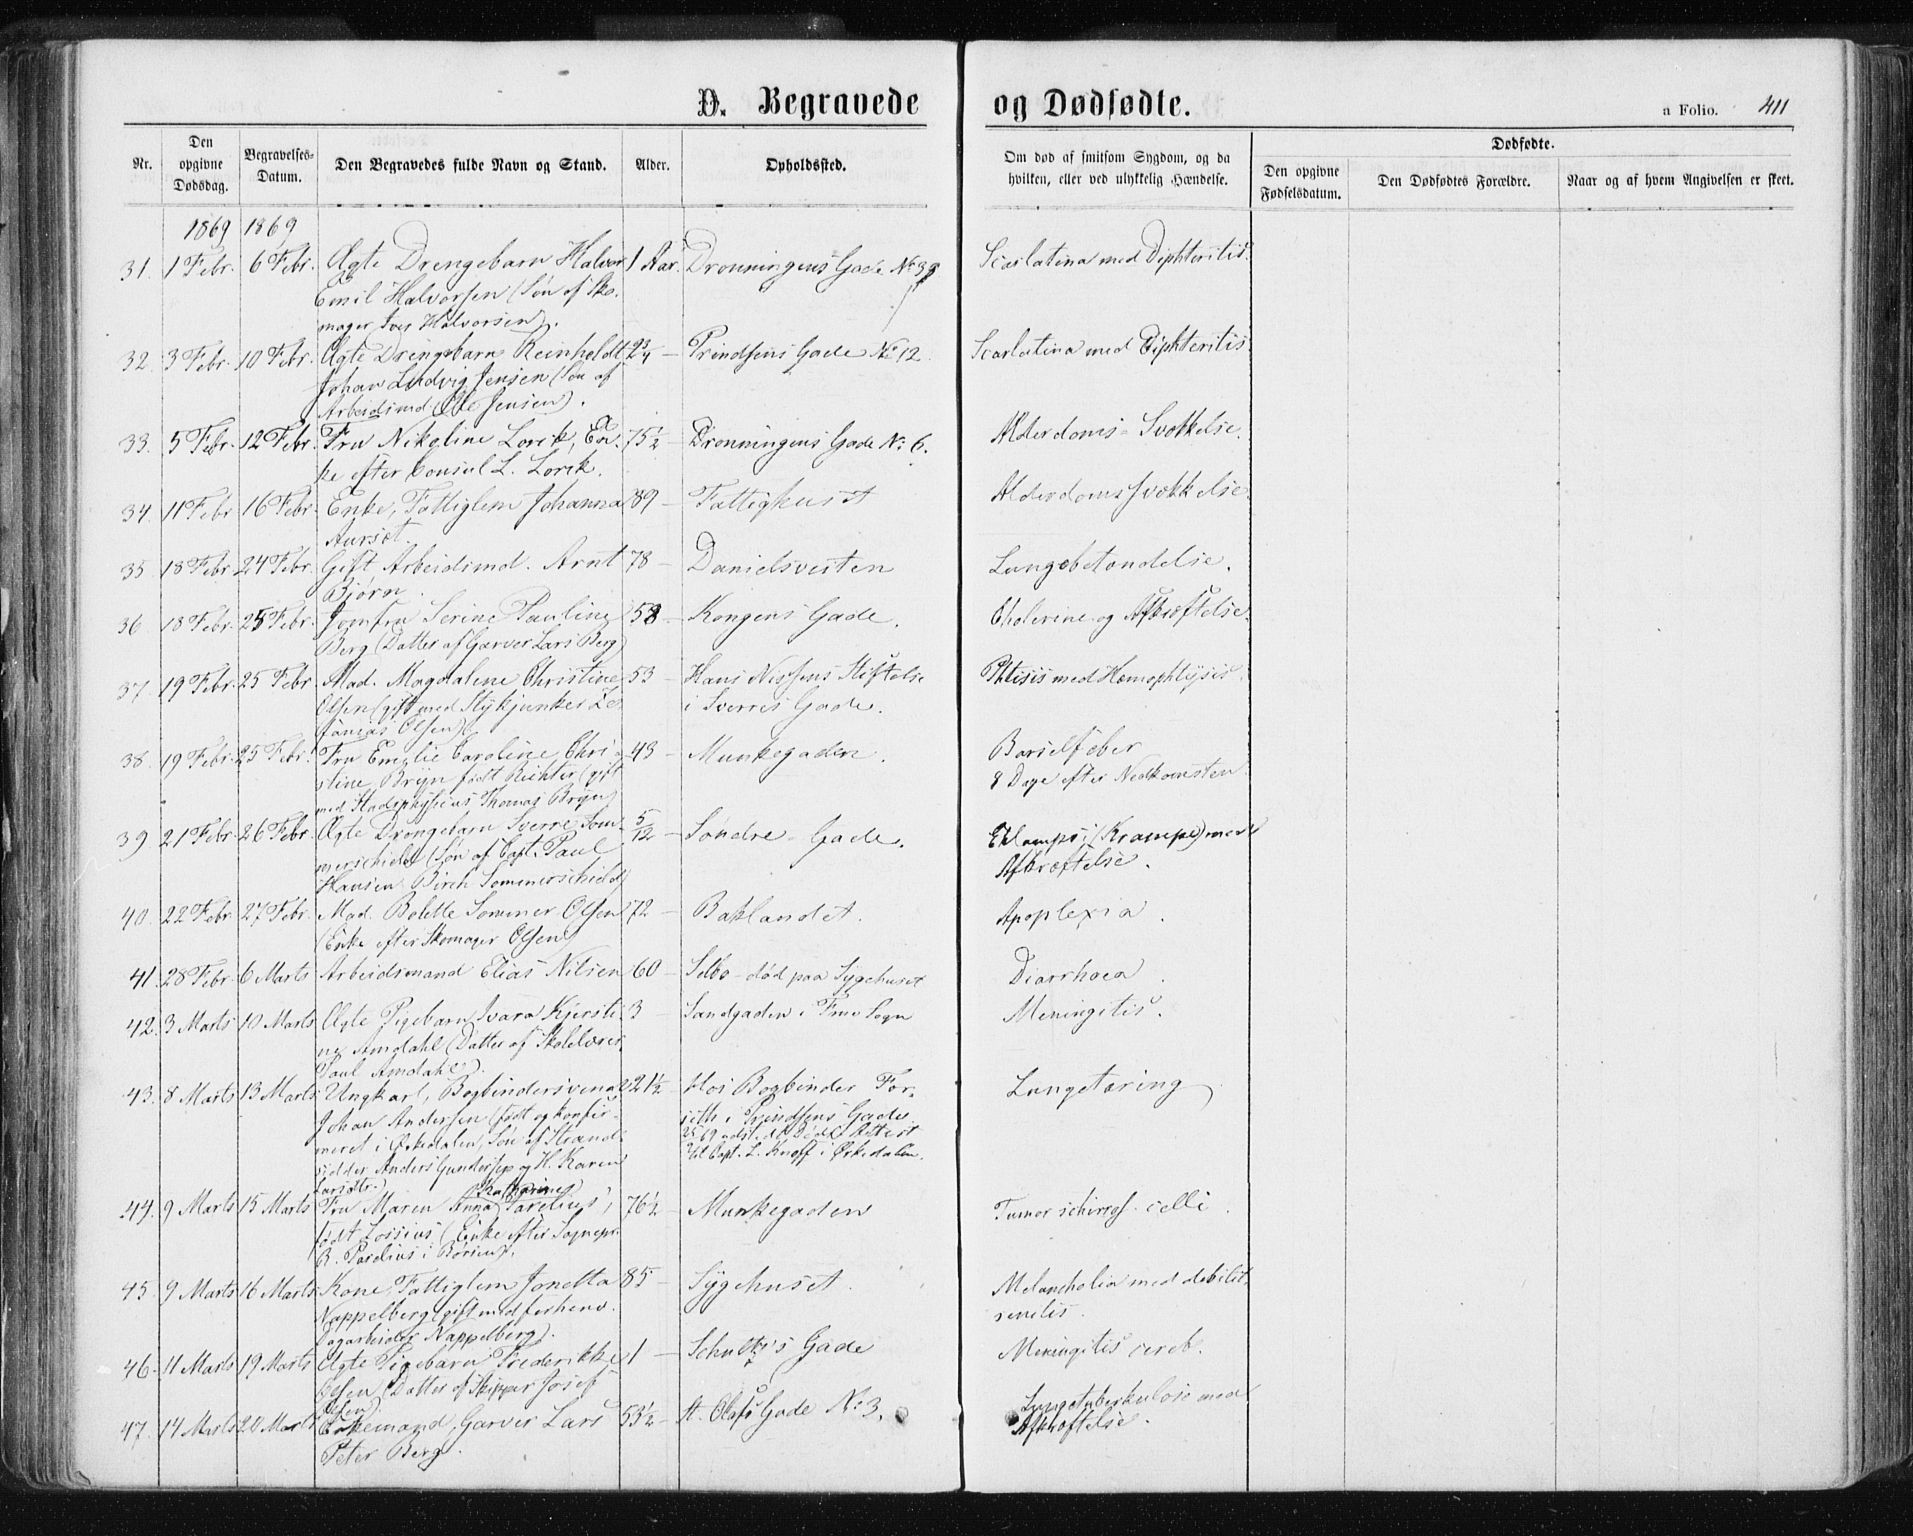 D. Begravede og Dødfødte.
a Folio. 411
Nr.
Den opgivne Dødsdag.
Begravelses-Datum.
Den Begravedes fulde Navn og Stand.
Alder.
Opholdssted.
Om død af smitsom Sygdom, og da hvilken, eller ved ulykkelig Hændelse.
Dødfødte.
Den opgivne Fødselsdatum.
Den Dødfødtes Forældre.
Naar og af hvem Angivelsen er skeet.
1869 1869
31. 1 Febr. 6 Febr. Ægte Drengebarn Halvor 1 Aar. Dronningens Gade No 39 Scarlatina med Diphteritis.
Emil Halvorsen (Søn af Sko-
mager Iver Halvorsen).
32. 3 Febr. 10 Febr. Ægte Drengebarn Reinholdt 2¾ — Prindsens Gade No 12. Scarlatina med Diphteritis.
Johan Ludvig Jensen (Søn af
Arbeidsmd. Ole Jensen).
33. 5 Febr. 12 Febr. Fru Nikoline Lorck, En- 75½ — Dronningens Gade No 6. Alderdoms-Svækkelse.
ke efter Consul L. Lorck.
34. 11 Febr. 16 Febr. Enke, Fattiglem Johanna 89 — Fattighuset Alderdomssvækkelse.
Aursæt.
35 18 Febr. 24 Febr. Gift Arbeidsmd. Arnt 78 — Danielsveiten Lungebetændelse.
Bjørn.
36 18 Febr. 25 Febr. Jomfru Serine Pauline 58 — Kongens Gade. Cholerine og Afkræftelse.
Berg (Datter af Garver Lars Berg)
37. 19 Febr. 25 Febr. Mad. Magdalene Christine 53 — Hans Nissens Stiftelse Phtisis med Hæmophtysis.
Olsen (gift med Stykjunker Ze- i Sverres Gade.
fanias Olsen).
38. 19 Febr. 25 Febr. Fru Emilie Caroline Chri- 43 — Munkegaden. Barselfeber
stine Bryn født Richter (gift 8 Dage efter Nedkomsten
med Stadsphysicus Thomas Bryn)
39 21 Febr. 26 Febr. Ægte Drengebarn Sverre Som- 5/12 — Søndre-Gade. Eklampsi (Krampe) med
merschield (Søn af Capt. Paul Afkræftelse.
Hansen Birch Sommerschield)
40. 22 Febr. 27 Febr. Mad. Bolette Sommer Olsen 72 — Baklandet. Apoplexia.
(Enke efter Skomager Olsen)
41. 28 Febr. 6 Marts Arbeidsmand Elias Nilsen 60 — Selbo - død paa Sygehuset Diarrhoea.
42. 3 Marts 10 Marts Ægte Pigebarn Ivara Kjersti- 3 — Sandgaden i Frue Sogn Meningitis.
ne Amdahl (Datter af Skolelærer
Paul Amdahl).
43. 8 Marts 13 Marts Ungkarl, Bogbindersvend 21½ Hos Bogbinder For- Lungetæring
Johan Andersen (født og konfir- seth i Prindsens Gade
meret i Ørkedalen, Søn af Strand-
sidder Anders Gundersen og H. Karen til Capt. L. Knoff i Ørkedalen.
Larsdtr.)
44. 9 Marts 15 Marts Fru Maren Anna Katharina Parelius, 76½ — Munkegaden Tumor
født Lossius (Enke efter Sognepr.
R. Parelius i Børsen).
45. 9 Marts 16 Marts Kone, Fattiglem Jonetta 85 — Sygehuset. Melancholia med debilit.
Nappelberg (gift med forhenv. senilis.
Nappelberg).
46. 11 Marts 19 Marts Ægte Pigebarn Frederikke 1 — Schultz's Gade Meningitis cereb.
Olsen (Datter af Skipper Josef
Olsen)
47. 14 Marts 20 Marts Enkemand, Garver Lars 53½ — St. Olafs Gade No 3. Lungetuberkulose med
Peter Berg. Afkræftelse.